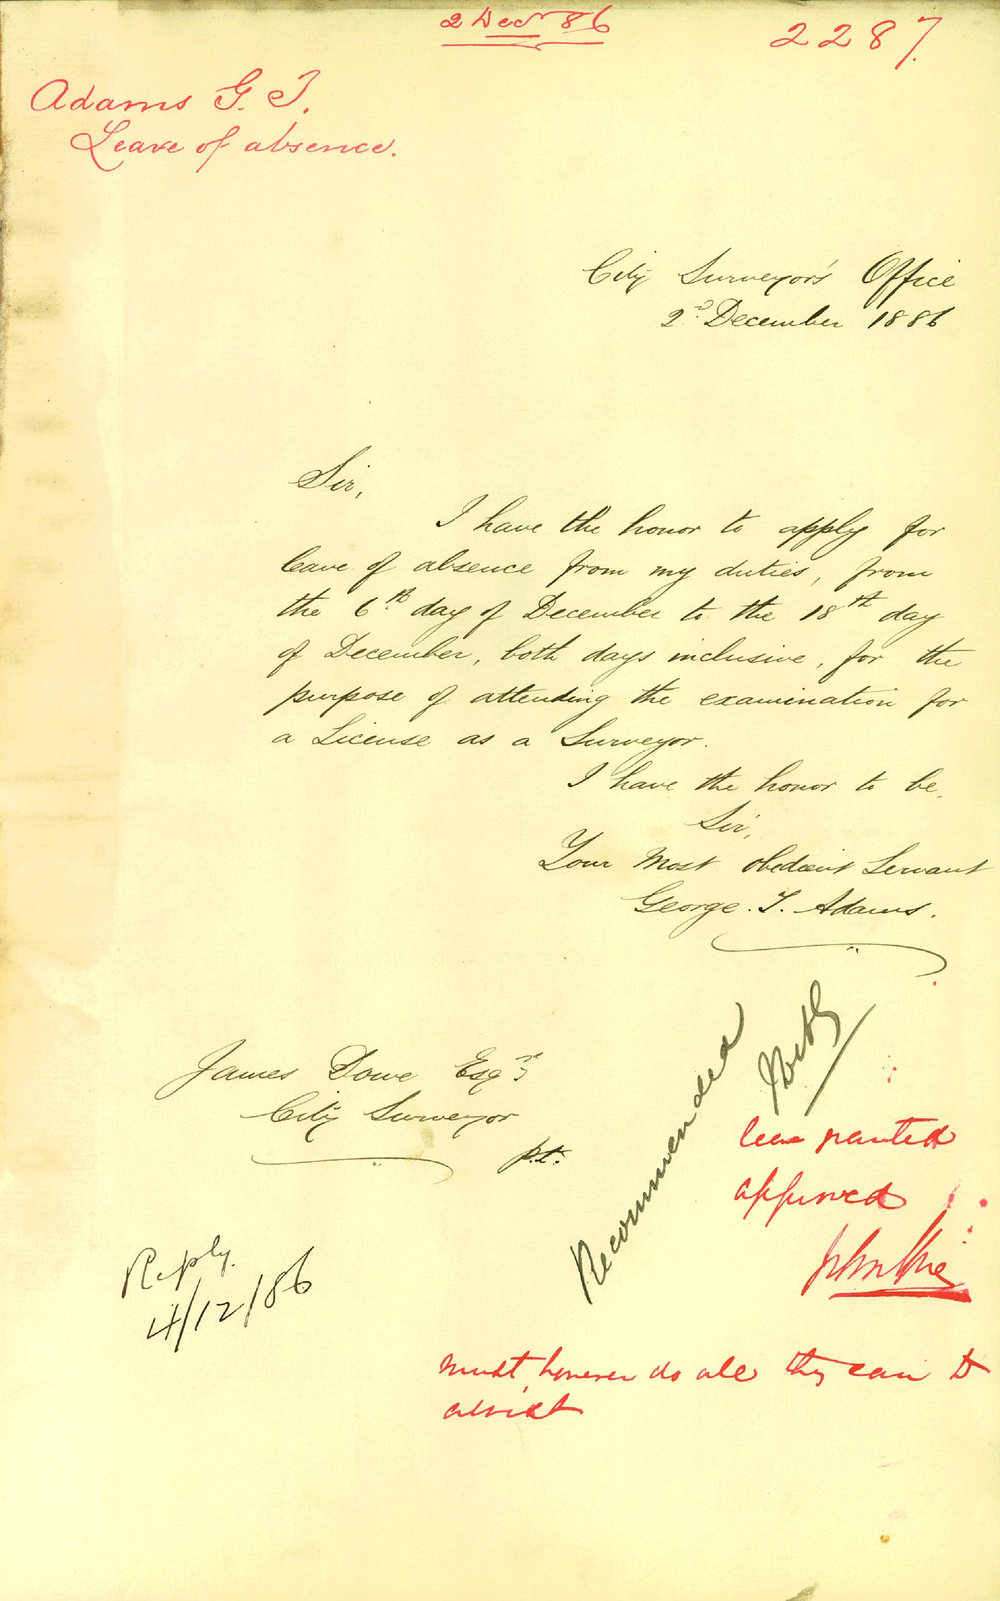 2 Decr 86
2287.
Adams G. T.
Leave of absence.
City Surveyor's Office
2d December 1886
Sir,
I have the honor to apply for
leave of absence from my duties, from
the 6th day of December to the 18th day
of December, both days inclusive, for the
purpose of attending the examination for
a License as a Surveyor.
I have the honor to be,
Sir,
Your Most obedient Servant
George. T. Adams.
James Dowe Esqre
City Surveyor
p.t.
Recommended
leave granted
approved
Reply.
4/12/86
must however do all they can to
assist